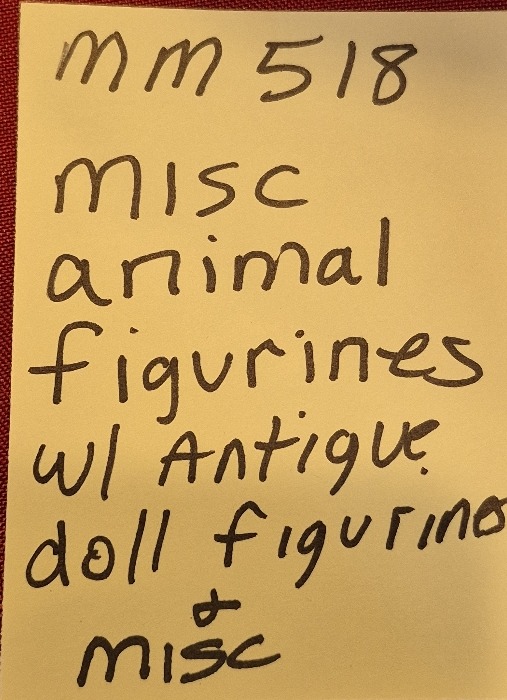 MM 518
MISC
animal
figurines
w/ Antique
doll figurine
&
MISC